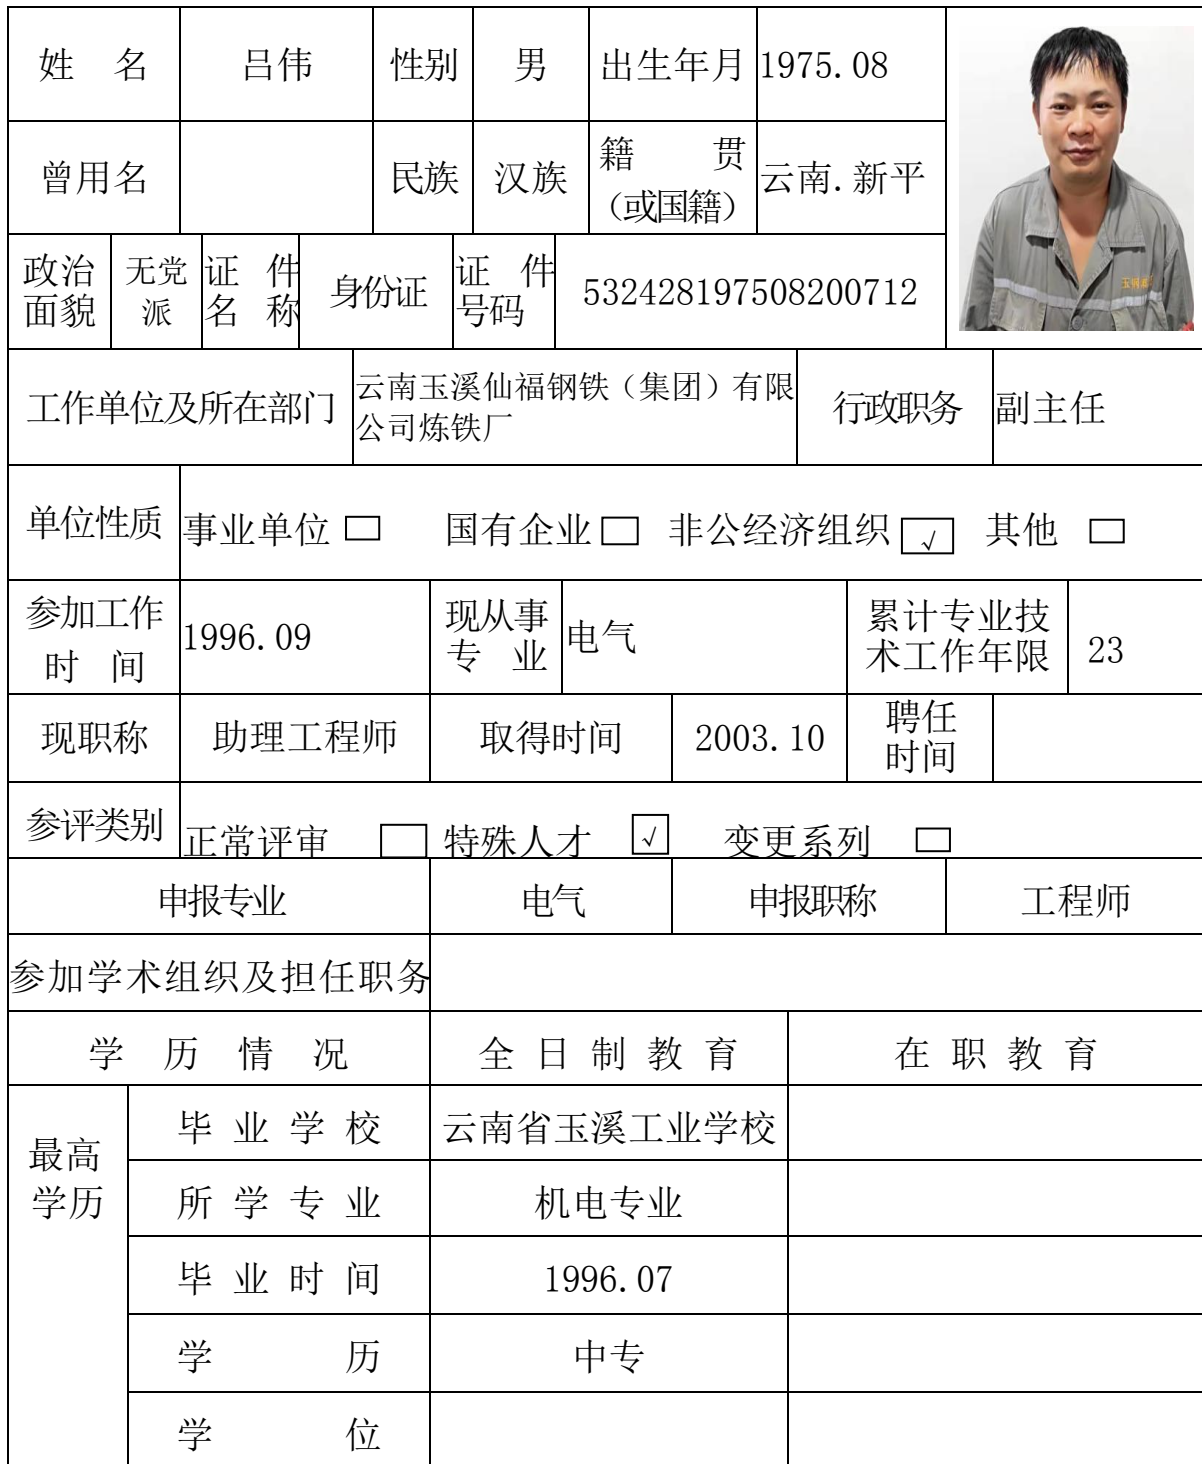 姓 名 吕伟 性别 男 出生年月 1975.08
曾用名 民族 汉族 籍 贯 云南.新平
（或国籍）
政治 无党 证 件 身份证 证 件 532428197508200712
面貌 派 名 称 号码
工作单位及所在部门 云南玉溪仙福钢铁（集团）有限 行政职务 副主任
公司炼铁厂
单位性质 事业单位 国有企业 非公经济组织 √ 其他
参加工作 1996.09 现从事 电气 累计专业技 23
时 间 专 业 术工作年限
现职称 助理工程师 取得时间 2003.10 聘任
时间
参评类别 正常评审 特殊人才 √ 变更系列
申报专业 电气 申报职称 工程师
参加学术组织及担任职务
学 历 情 况 全 日 制 教 育 在 职 教 育
最高 毕 业 学 校 云南省玉溪工业学校
学历 所 学 专 业 机电专业
毕 业 时 间 1996.07
学 历 中专
学 位